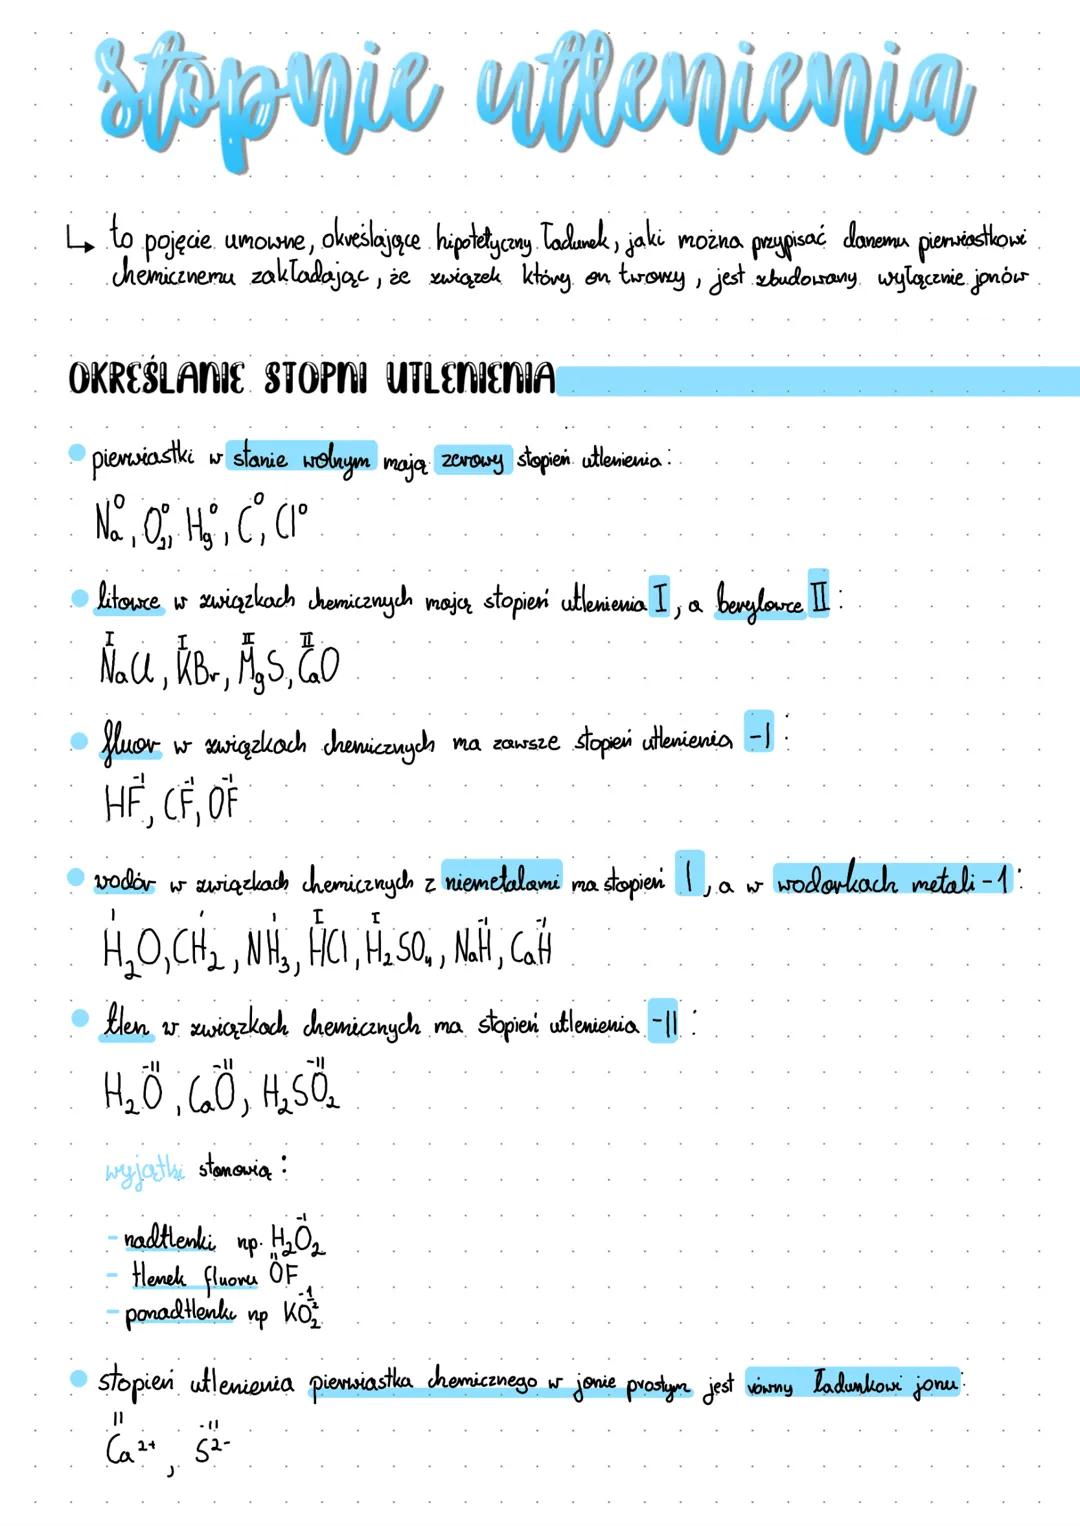 stopnie utlenienia
↳ to pojęcie umowne, określające hipotetyczny ładunek, jaki można przypisać danemu pierwiastkowi
chemicznemu zakładając, że związek który on tworzy, jest zbudowany wyłącznie jonów
OKREŚLANIE STOPNI UTLENIENIA
• pierwiastki w stanie wolnym mają zerowy stopień utlenienia:
Na⁰, O₂⁰, Hg⁰, C⁰, Cl⁰
• litowce w związkach chemicznych mają stopień utlenienia I, a berylowce II:
I I II II
NaCl, KBr, MgS, CaO
• fluor w związkach chemicznych ma zawsze stopień utlenienia -I:
-I -I -I
HF, CF, OF
• wodór w związkach chemicznych z niemetalami ma stopień I, a w wodorkach metali -1:
I I I I I -I -I
H₂O, CH₂, NH₃, HCl, H₂SO₄, NaH, CaH
• tlen w związkach chemicznych ma stopień utlenienia -II:
-II -II -II
H₂O, CaO, H₂SO₂
wyjątki stanowią:
-I
- nadtlenki np. H₂O₂
II
- tlenek fluoru OF
-1/2
- ponadtlenki np KO₂
• stopień utlenienia pierwiastka chemicznego w jonie prostym jest równy ładunkowi jonu:
II -II
Ca²⁺, S²⁻